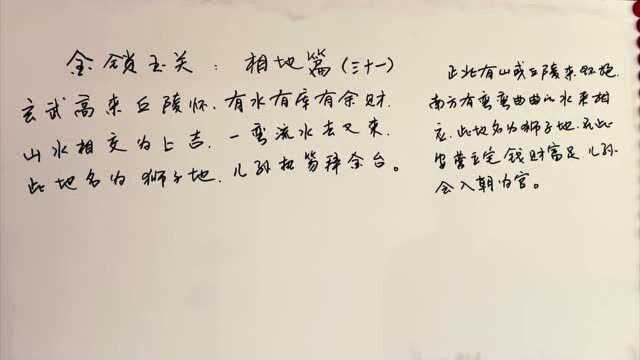 金锁玉关：相地篇（三十一）
玄武高来丘陵怀、有水有库有余财.
山水相交为上吉、一弯流水去又来.
此地名为狮子地、儿孙执笏拜金台。
正北有山或丘陵来环抱.
南方有弯弯曲曲的水来相
应.此地名为狮子地.在此
安营立定钱财富足儿孙
会入朝为官。